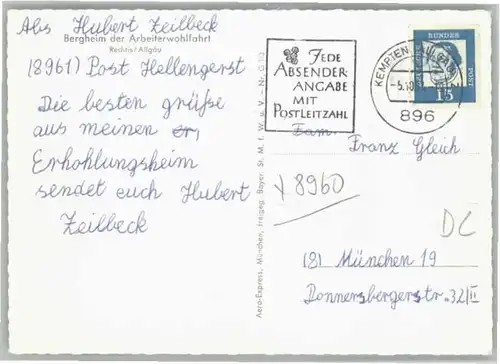 Abs Hubert Zeilbeck
Bergheim der Arbeiterwohlfahrt
Rechtis/Allgäu
(8961) Post Hellengerst
Die besten grüße
aus meinen er,
Erhohlungsheim
sendet euch Hubert
Zeilbeck
Aero-Express, München, Freigeg. Bayer. St. M. f. W. u. V. - Nr. G
JEDE
ABSENDER-
ANGABE
MIT
POSTLEITZAHL
KEMPTEN
896
DEUTSCHE BUNDESPOST
15
Fam.
Franz Gleich
8960
DC
(8) München 19
Donnersbergerstr. 32/II